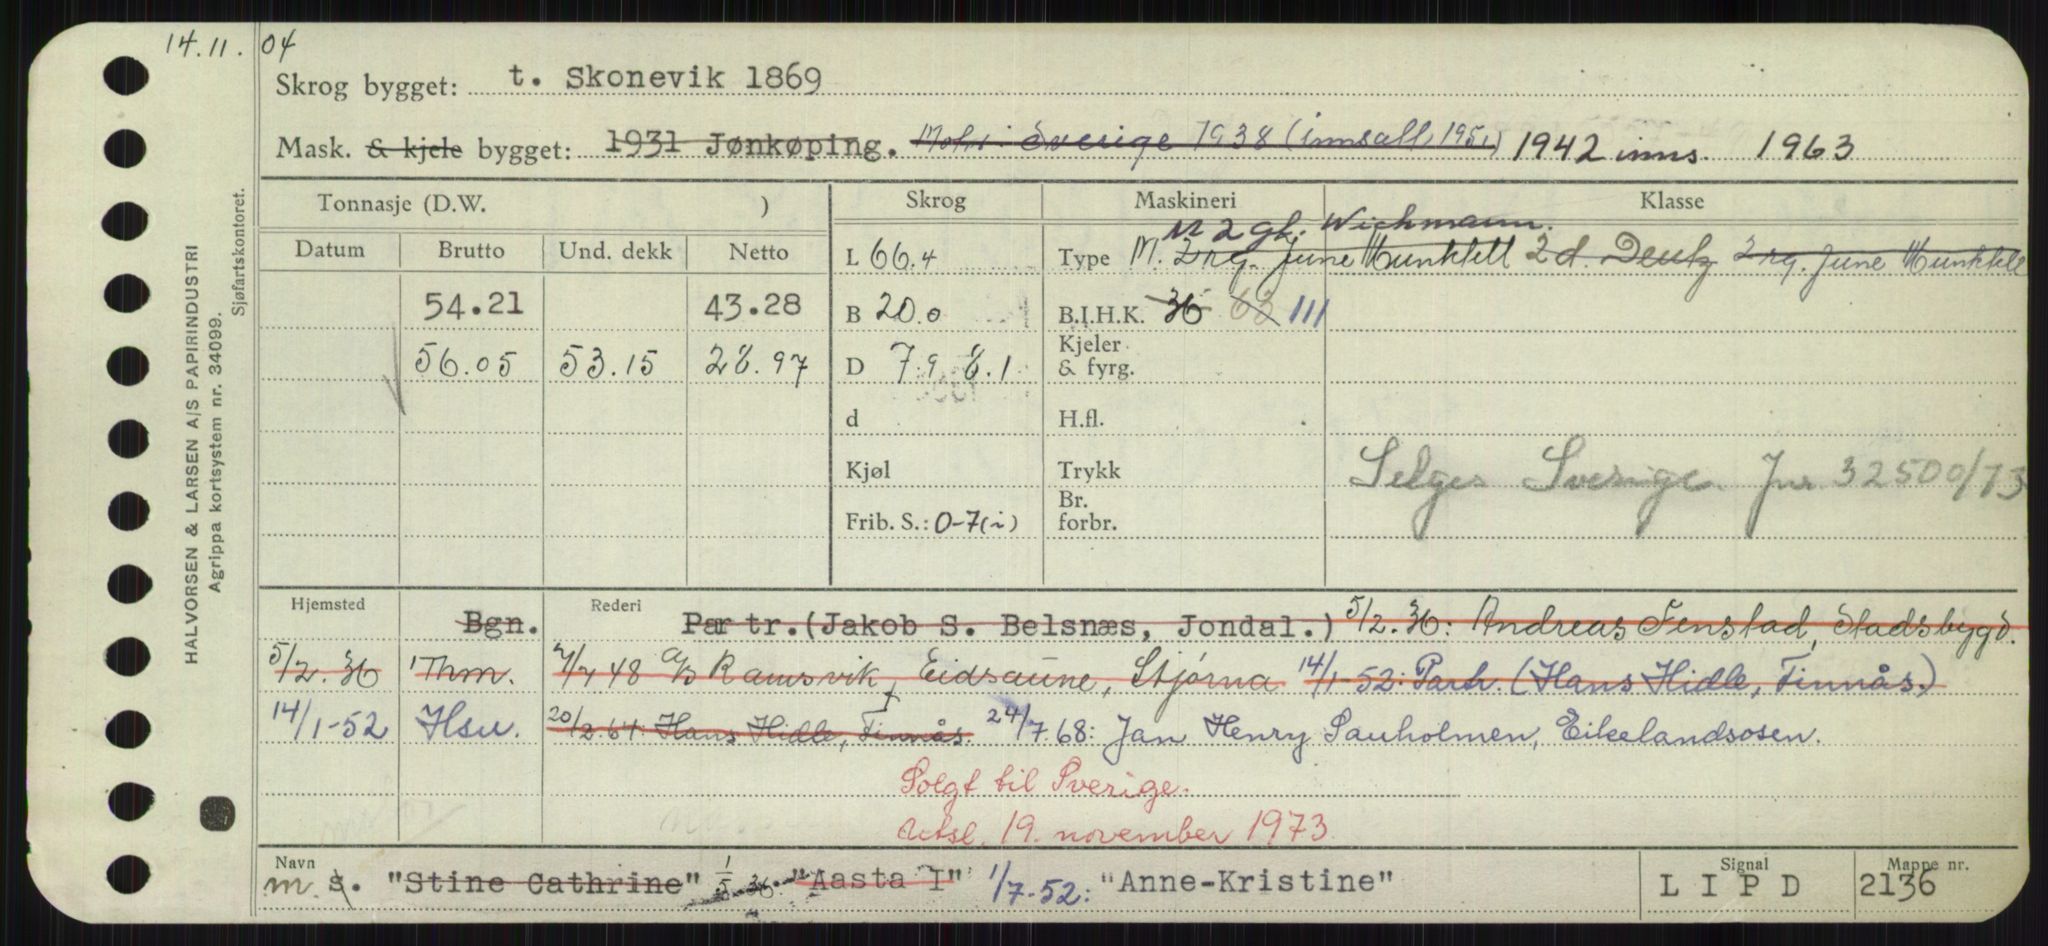 14.11.04
Skrog bygget: t. Skonevik 1869
Mask. & kjele bygget: 1931 Jønkøping. Motor: Sverige 1938 (innsatt 1951) 1942 inns. 1963
Tonnasje (D.W. ) Skrog Maskineri Klasse
M 2 gl. Wichmann.
Datum Brutto Und. dekk Netto L 66.4 Type M. 2 rg. June Munktell 2 d. Deutz 2 rg. June Munktell
54.21 43.28 B 20.0 B.I.H.K. 36 63 111
56.05 53.15 28.97 D 7.9 8.1 Kjeler & fyrg.
d H.fl.
Kjøl Trykk Selges Sverige. Jnr. 32500/73
Frib. S.: 0-7(i) Br. forbr.
Hjemsted Bgn. Rederi Partr. (Jakob S. Belsnæs, Jondal.) 5/2.36: Andreas Fenstad, Stadsbygd.
5/2.36 Thm. 7/7 48 A/S Ramsvik, Eidsaune, Stjørna 14/1-52: Partr. (Hans Hidle, Finnås.)
14/1-52 Hsu. 20/2.64: Hans Hidle, Finnås. 24/7.68: Jan Henry Sauholmen, Eikelandsosen.
Solgt til Sverige.
Utsl. 19. november 1973
Navn Signal Mappe nr.
m s. "Stine Cathrine" 1/5 36: "Aasta I" 1/7-52: "Anne-Kristine" L I P D 2136
HALVORSEN & LARSEN A/S PAPIRINDUSTRI
Agrippa kortsystem nr. 34099.
Sjøfartskontoret.